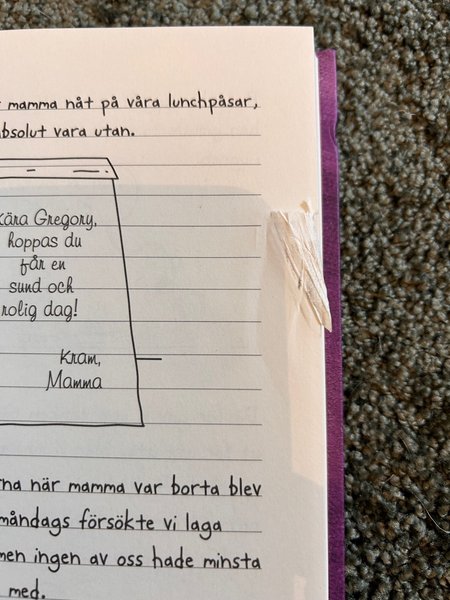 mamma nåt på våra lunchpåsar,
absolut vara utan.
Kära Gregory,
hoppas du
får en
sund och
rolig dag!
Kram,
Mamma
när mamma var borta blev
måndags försökte vi laga
men ingen av oss hade minsta
med.